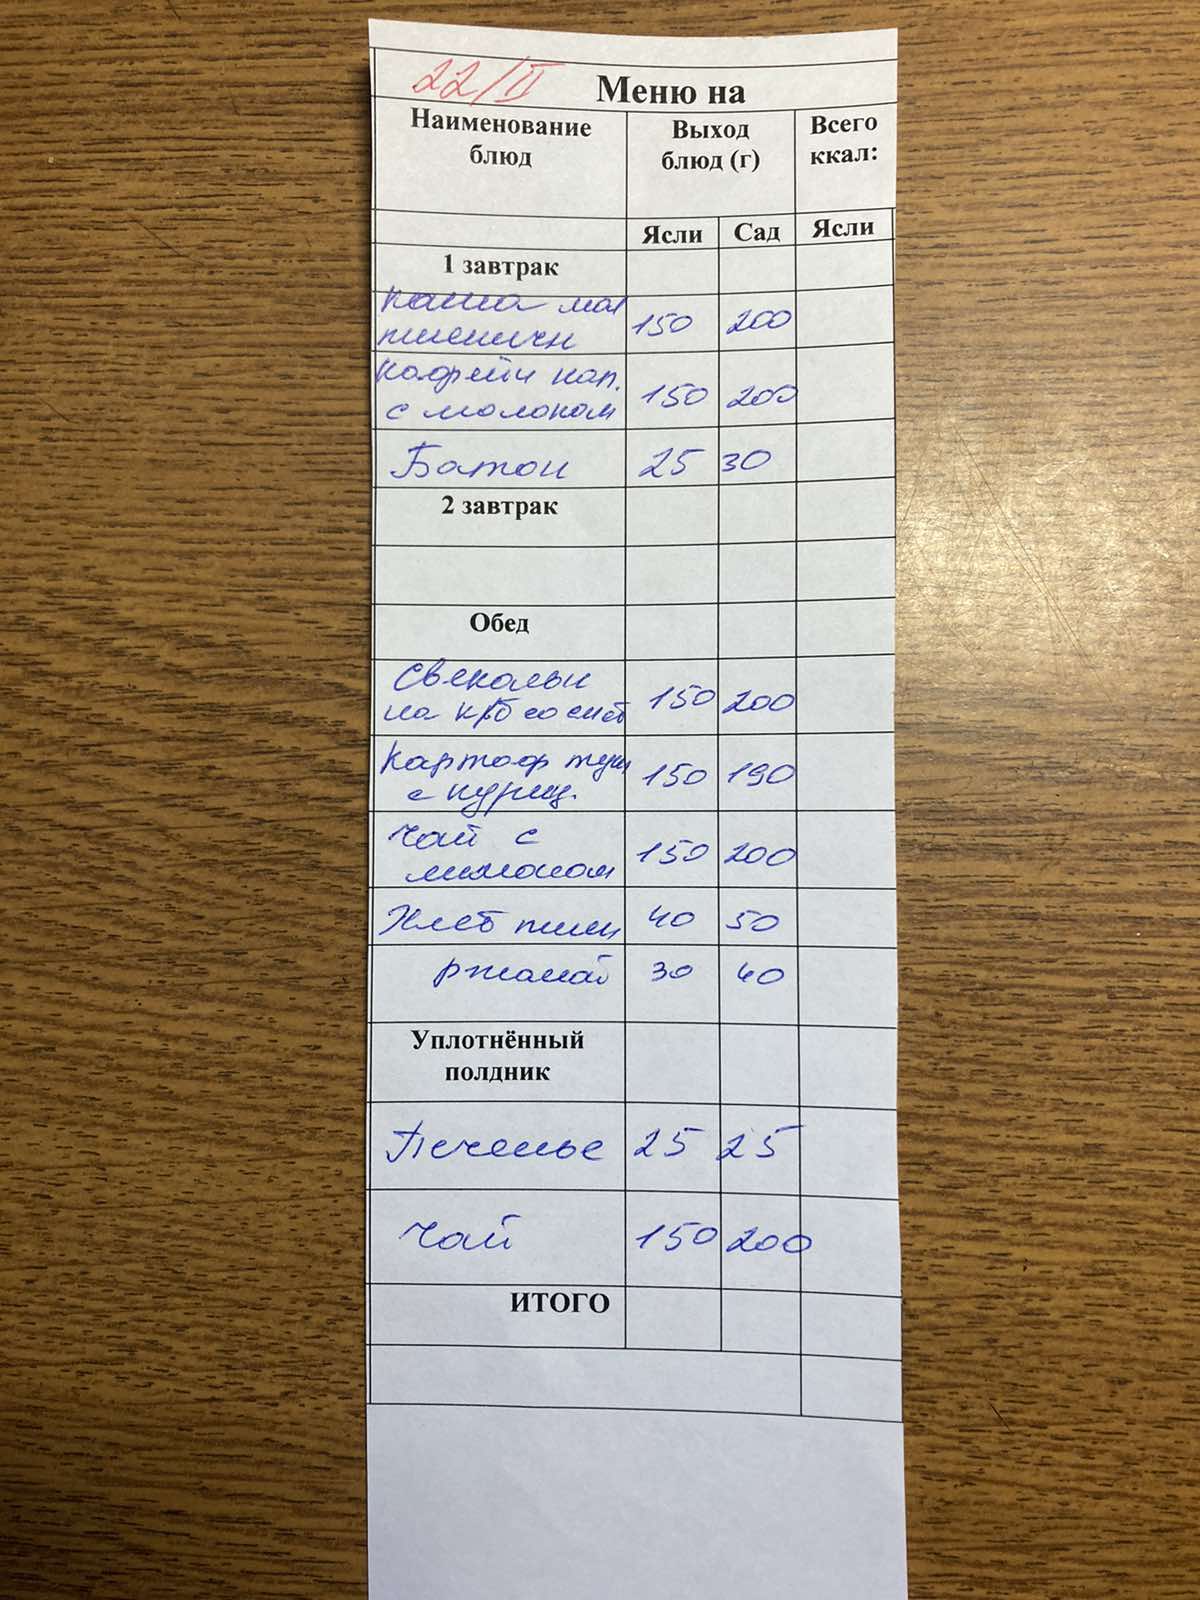 22/II Меню на
Наименование Выход Всего
блюд блюд (г) ккал:
Ясли Сад Ясли
1 завтрак
каша мол
пшеничн 150 200
Кофейн нап.
с молоком 150 200
Батон 25 30
2 завтрак
Обед
Свекольн
на к/б со смет 150 200
Картоф туш
с куриц. 150 190
Чай с
лимоном 150 200
Хлеб пшен 40 50
ржаной 30 40
Уплотнённый
полдник
Печенье 25 25
Чай 150 200
ИТОГО